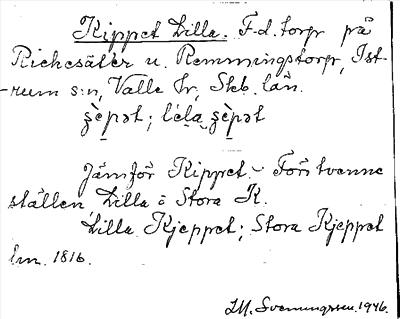 Kippet Lilla. F.d. torp på
Richesäter u. Remmingstorp, Ist-
rum s:n, Valle hr, Skb. län.
s̨èpət; lɩ́la s̨èpət
Jämför Kippet.- Förr tvenne
ställen Lilla o Stora K.
Lilla Kjeppet; Stora Kjeppet
Lm. 1816.
I.M. Svenungsson. 1946.